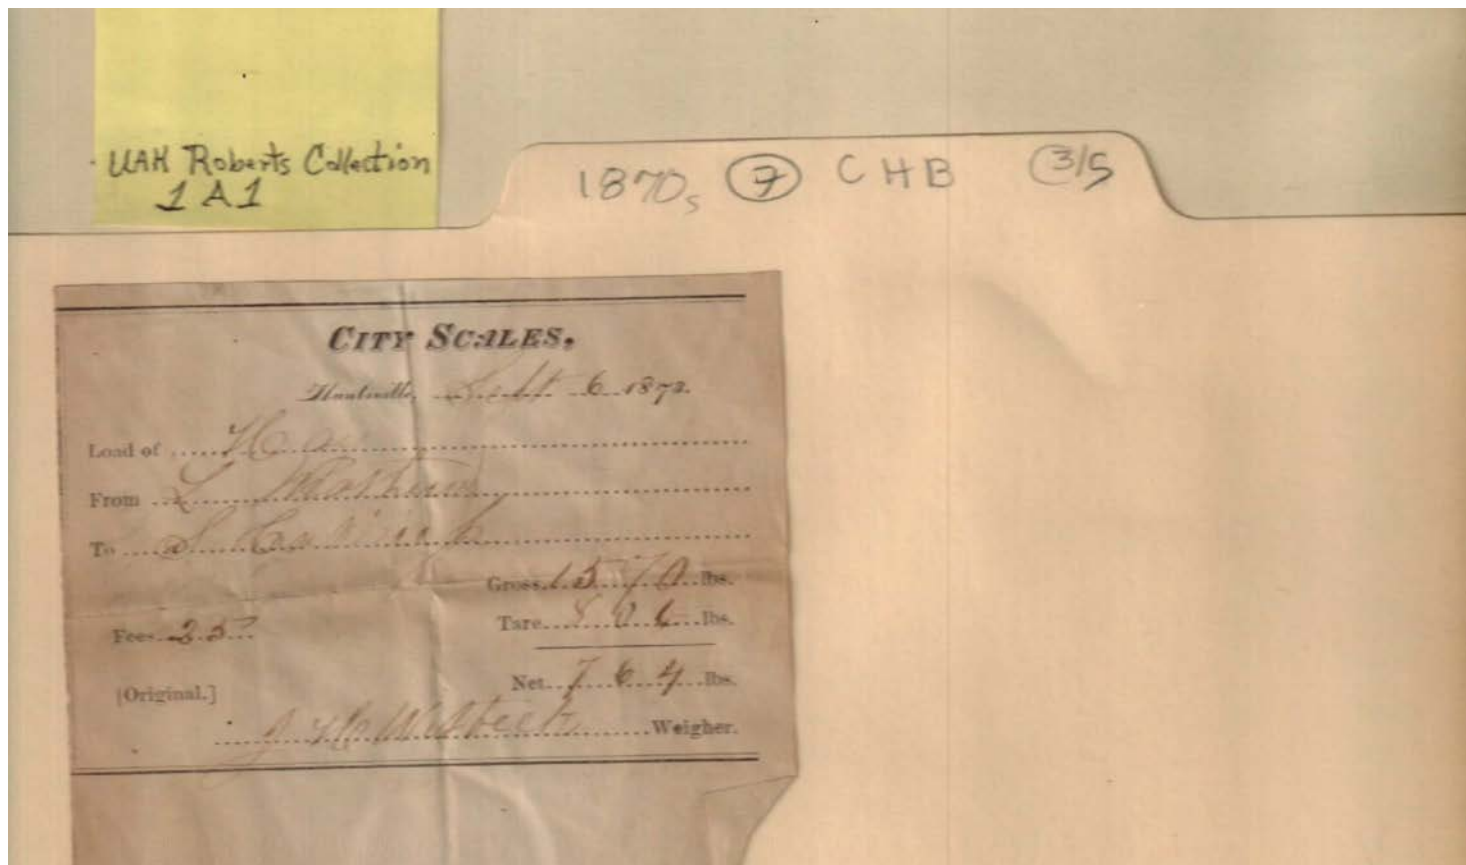 UAH Roberts Collection
1 A 1
1870s 7 CHB 3/5
CITY SCALES.
Huntsville, Sept 6 1872.
Load of Hay
From L
To S.
Gross 1570 lbs.
Fees 25 Tare 806 lbs.
Net 764 lbs.
[Original.]
Weigher.